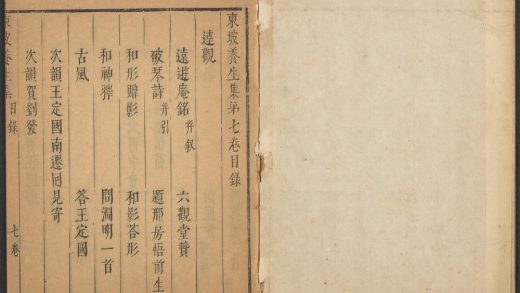 東坡養生集第七卷目錄
達觀
遠遊庵銘 并叙
六觀堂贊
破琴詩 并引
題那房悟前生
和形贈影
和影荅形
和神釋
問淵明一首
古風
答王定國
次韻王定國南遷回見寄
次韻賀劉發
東坡養生集目錄
七卷